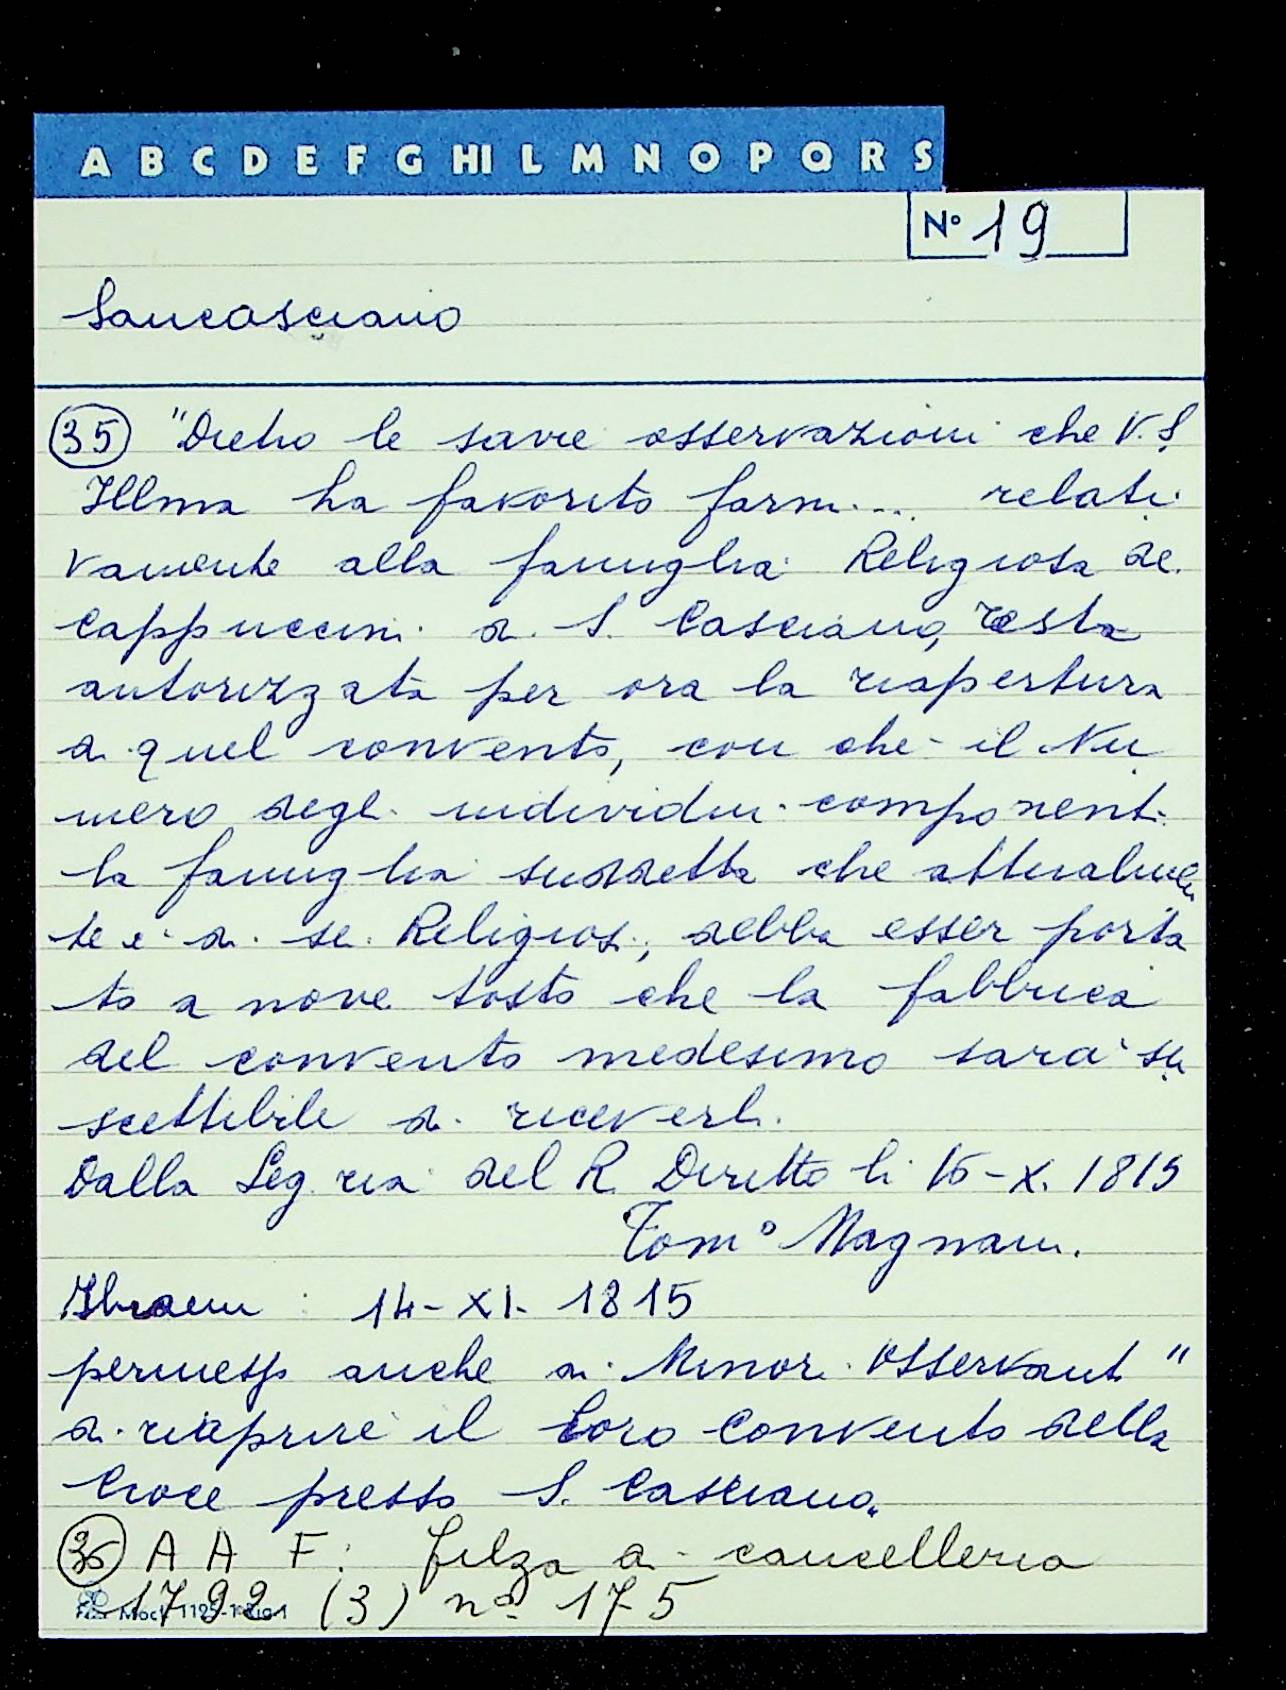 A B C D E F G HI L M N O P Q R S
N° 19
Sancasciano
35 "Dietro le savie osservazioni che V.S.
Illma ha favorito farmi... relati
vamente alla famiglia Religiosa de
Cappuccini di S. Casciano, resta
autorizzata per ora la riapertura
di quel convento, con che il Nu
mero degli individui componenti
la famiglia suddetta che attualmen
te è di sei Religiosi, debba esser porta
to a nove tosto che la fabbrica
del convento medesimo sarà su
scettibile di riceverli.
Dalla Seg.ria del R. Diritto li 16-X. 1815
Tom° Magnani.
14-XI- 1815
permesso anche ai Minori Osservanti"
di riaprire il loro Convento della
Croce presso S. Casciano.
35 A A F: filza di cancelleria
1792 (3) n° 175